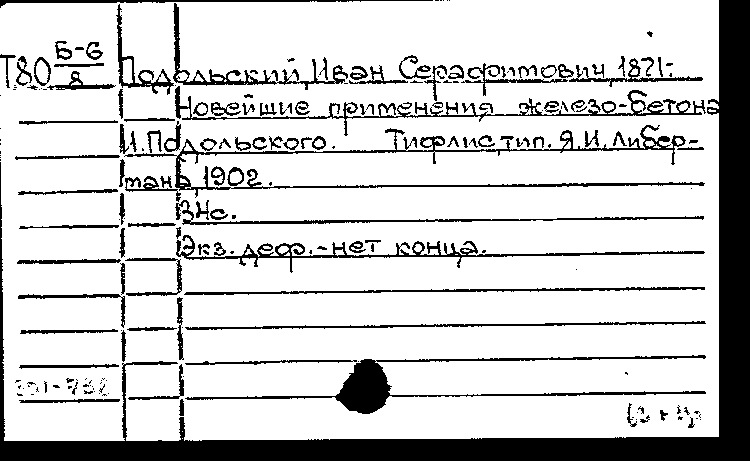 Т80 Б-6/8 Подольский, Иван Серафимович, 1871-
Новейшие применения железо-бетона
И.Подольского. Тифлис, тип. Я.И. Либер-
мана, 1902.
34с.
Экз. деф.-нет конца.